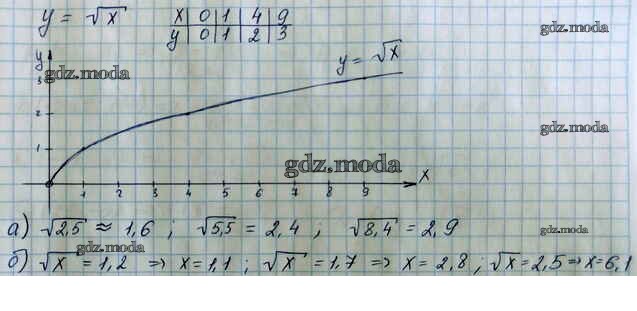 y = √x
x | 0 | 1 | 4 | 9
y | 0 | 1 | 2 | 3
gdz.moda
y
gdz.moda
3
y = √x
2
gdz.moda
1
gdz.moda
x
1 2 3 4 5 6 7 8 9
а) √2,5 ≈ 1,6 ; √5,5 = 2,4 ; √8,4 = 2,9
gdz.moda
gdz.moda
б) √x = 1,2 ⇒ x = 1,1 ; √x = 1,7 ⇒ x = 2,8 ; √x = 2,5 ⇒ x = 6,1